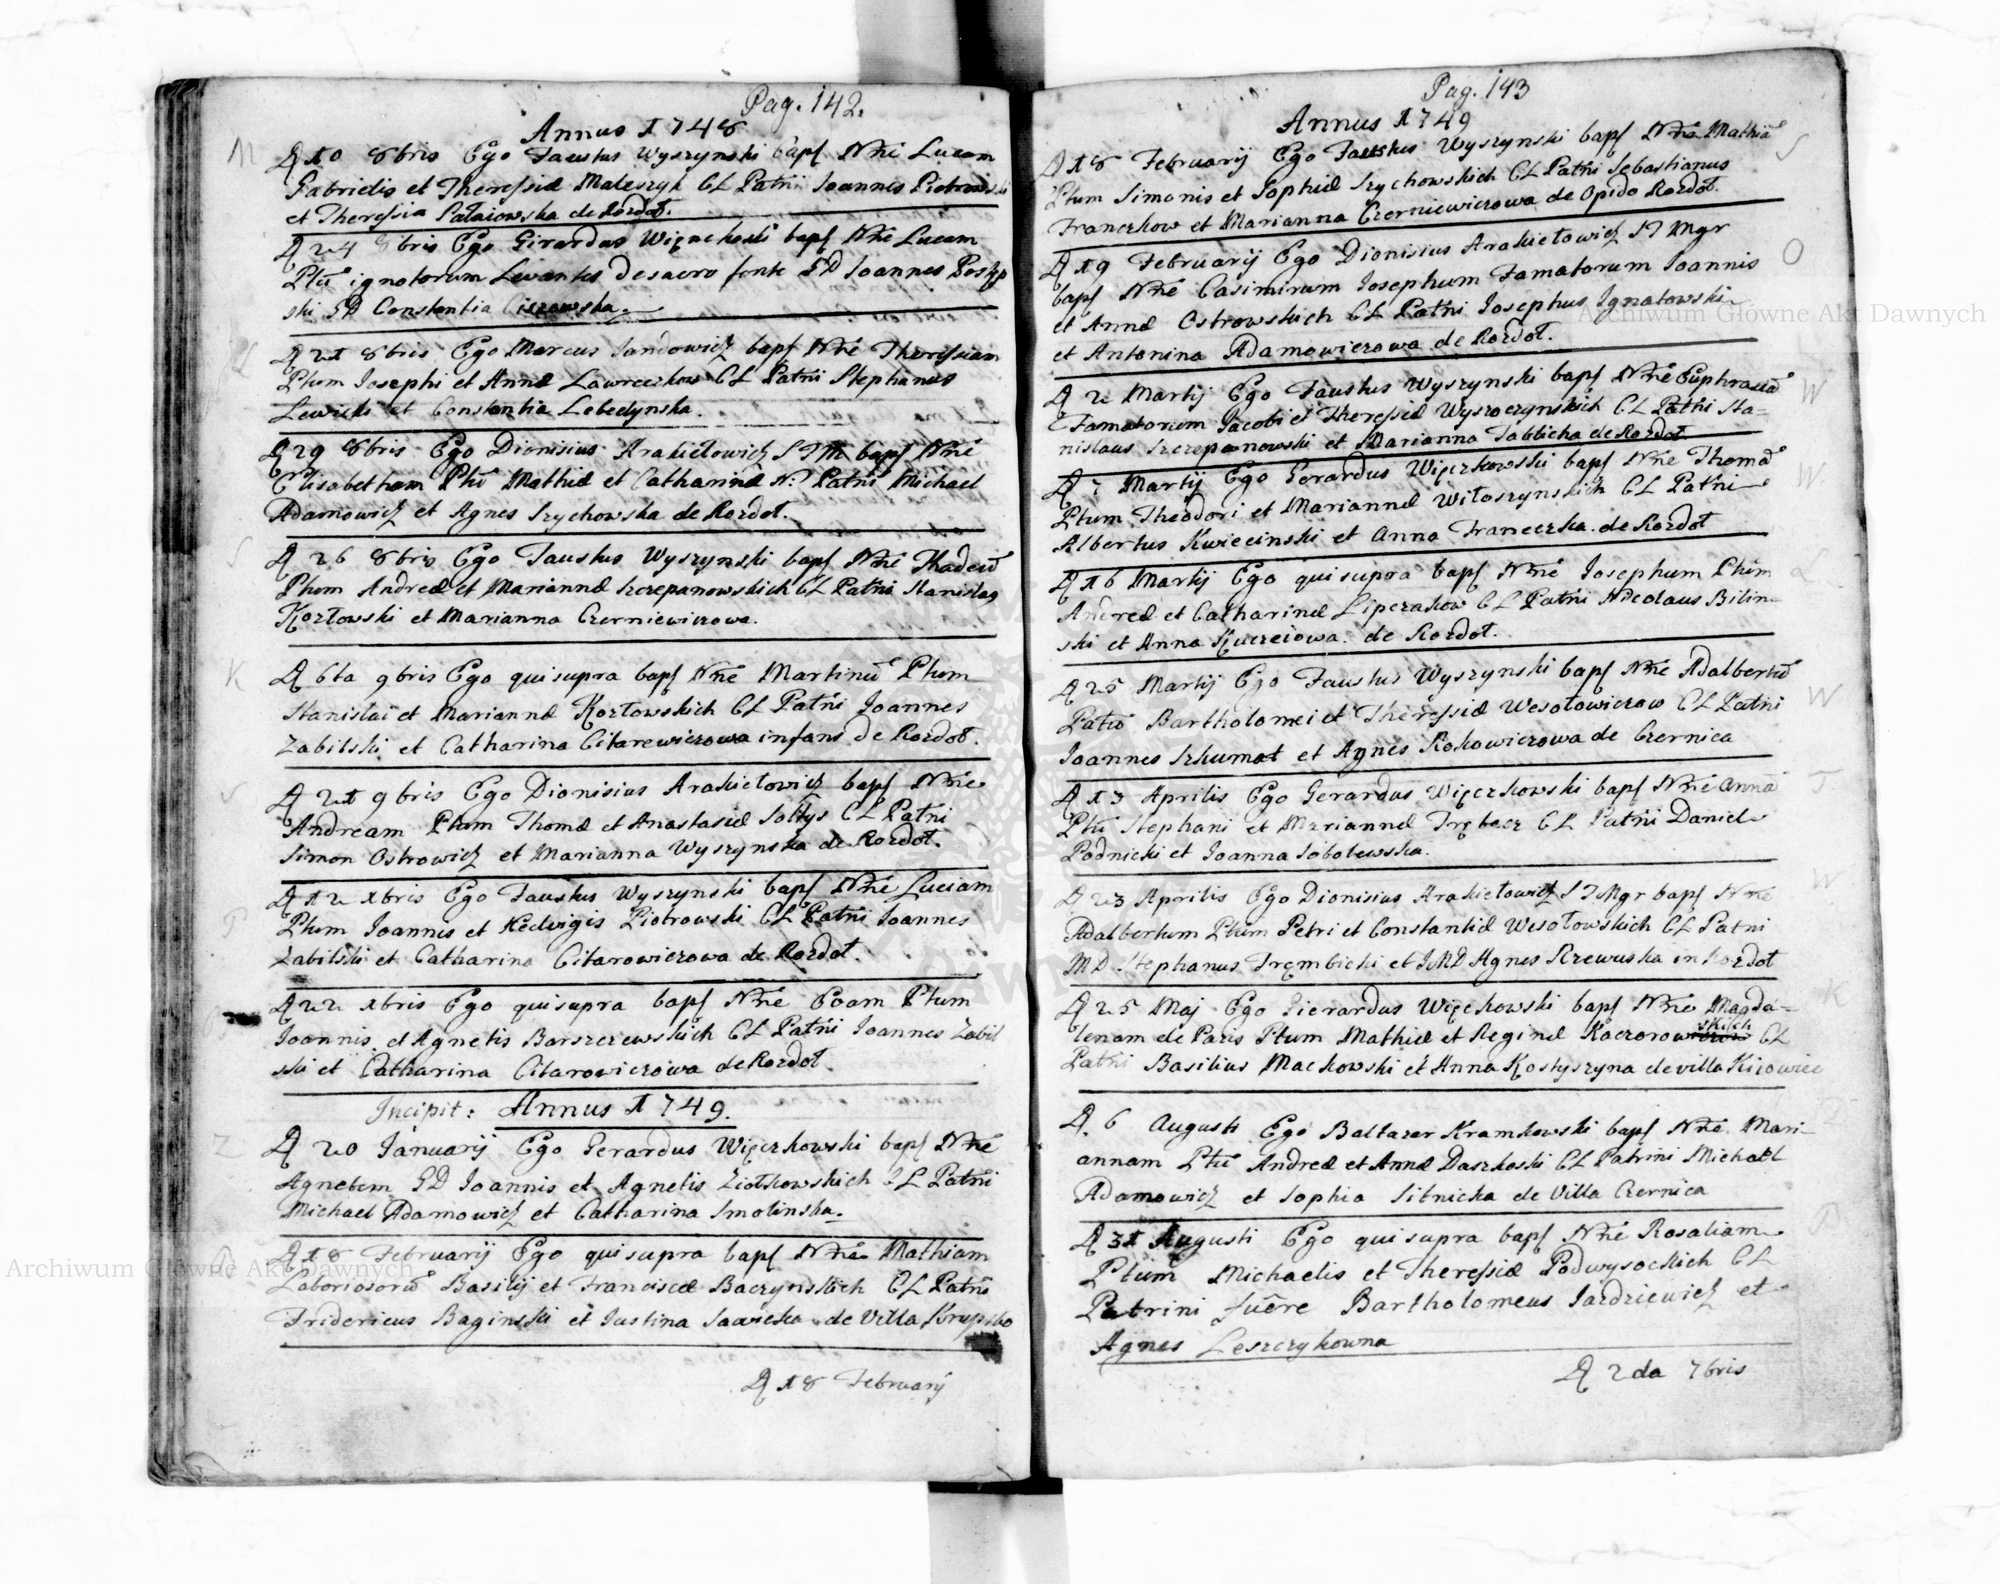 Pag. 142.
Annus 1748
M
D 10 8bris Ego Faustus Wyszynski bapt Nnē Lucam
Gabrielis et Theressiæ Maleszyk CL Patñi Joannes Piotrowski
et Theressia de Rozdoł.
D 24 8bris Ego Girardus Więckoski bapt Nnē Lucam
Pltū ignotorum Levantes de sacro fonte GD Joannes Postęp
ski GD Constantia Ciszewska.
D 21 8bris Ego Marcus Sandowicz bapt Nnē Theressiam
Pltum Josephi et Annæ Lawreczkow CL Patñii Stephanus
Lewicki et Constantia Lebedynska.
D 29 8bris Ego Dionisius Arakiełowicz STM bapt Nnē
Elisabetham Pltū Mathiæ et Catharinæ N: Patñi Michael
Adamowicz et Agnes Szychowska de Rozdoł.
S
D 26 8bris Ego Faustus Wyszynski bapt Nnē Thadeū
Pltum Andreæ et Mariannæ Szczepanowskich CL Patñi Stanislaq
Kozłowski et Marianna Czerniewiczowa.
K
D 6ta 9bris Ego qui supra bapt Nnē Martinū Pltum
Stanislai et Mariannæ Kozłowskich CL Patñi Joannes
Zabilski et Catharina Citarewiczowa infans de Rozdoł.
S
D 21 9bris Ego Dionisius Arakiełowicz bapt Nnē
Andream Pltum Thomæ et Anastasiæ Sołtys CL Patñi
Simon Ostrowicz et Marianna Wyszynska de Rozdoł.
P
D 12 Xbris Ego Faustus Wyszynski bapt Nnē Luciam
Pltum Joannis et Hedvigis Piotrowski CL Patñi Joannes
Zabilski et Catharina Citarowiczowa de Rozdoł.
D 22 Xbris Ego qui supra bapt Nnē Evam Pltum
Joannis et Agnetis Barszczewskich CL Patñi Joannes Zabil
ski et Catharina Citarowiczowa de Rozdoł.
Incipit: Annus 1749.
Z
D 20 Januarij Ego Gerardus Więczkowski bapt Nnē
Agnetem GD Joannis et Agnetis Ziołkowskich CL Patñi
Michael Adamowicz et Catharina Smolinska.
D 18 Februarij Ego qui supra bapt Nnē Mathiam
Laboriosorū Basilij et Franciscæ Baczynskich CL Patñi
Fridericus Baginski et Justina Sawicka de Villa Krupsko
D 18 Februarij
Pag. 143
Annus 1749
S
D 18 Februarij Ego Faustus Wyszynski bapt Nnē Mathiā
Pltum Simonis et Sophiæ Szychowskich CL Patñi Sebastianus
Franczkow et Marianna Czerniewiczowa de Opido Rozdoł.
O
D 19 Februarij Ego Dionisius Arakiełowicz ST Mgr
bapt Nnē Casimirum Josephum Famatorum Joannis
et Annæ Ostrowskich CL Patñi Josephus Ignatowski
et Antonina Adamowiczowa de Rozdoł.
W
D 2 Martij Ego Faustus Wyszynski bapt Nnē Euphrasiā
Famatorum Jacobi et Theressiæ Wysroczynskich CL Patñi Sta=
nislaus Szczepanowski et Marianna Tablicka de Rozdoł
W
D 7 Martij Ego Gerardus Więczkowski bapt Nnē Thomā
Pltum Theodori et Mariannæ Witoszynskich CL Patñi
Albertus Kwiecinski et Anna Franczka de Rozdoł
L
D 16 Martij Ego qui supra bapt Nnē Josephum Pltum
Andreæ et Catharinæ Lipczakow CL Patñi Nicolaus Bilin
ski et Anna Kuczeiowa de Rozdoł.
W
D 25 Martij Ego Faustus Wyszynski bapt Nnē Adalbertū
Patrū Bartholomei et Theressiæ Wesołowiczow CL Patñi
Joannes Szkumat et Agnes Rokowiczowa de Czernica
T
D 13 Aprilis Ego Gerardus Więczkowski bapt Nnē Annā
Pltū Stephani et Mariannæ Trębacz CL Patñii Daniel
Podnicki et Joanna Sobolewska.
W
D 23 Aprilis Ego Dionisius Arakiełowicz ST Mgr bapt Nnē
Adalbertum Pltum Petri et Constantiæ Wesołowskich CL Patñi
MD Stephanus Trembicki et JMD Agnes Rzewuska in Rozdoł
K
D 25 Maj Ego Gierardus Więckowski bapt Nnē Magda=
lenam de Paris Pltum Mathiæ et Reginæ Kaczorow skich CL
Patñi Basilius Mackowski et Anna Kostyszyna de villa Kijowiec
D
D 6 Augusti Ego Baltazer Kramkowski bapt Nnē Mari
annam Pltū Andreæ et Annæ Daszkoski CL Patrini Michael
Adamowicz et Sophia Sitnicka de Villa Czernica
P
D 31 Augusti Ego qui supra bapt Nnē Rosaliam
Pltum Michaelis et Theressiæ Podwysockich CL
Patrini fuêre Bartholomeus Jardziewicz et
Agnes Leszczykowna
D 2da 7bris
Archiwum Główne Akt Dawnych
Archiwum Główne Akt Dawnych